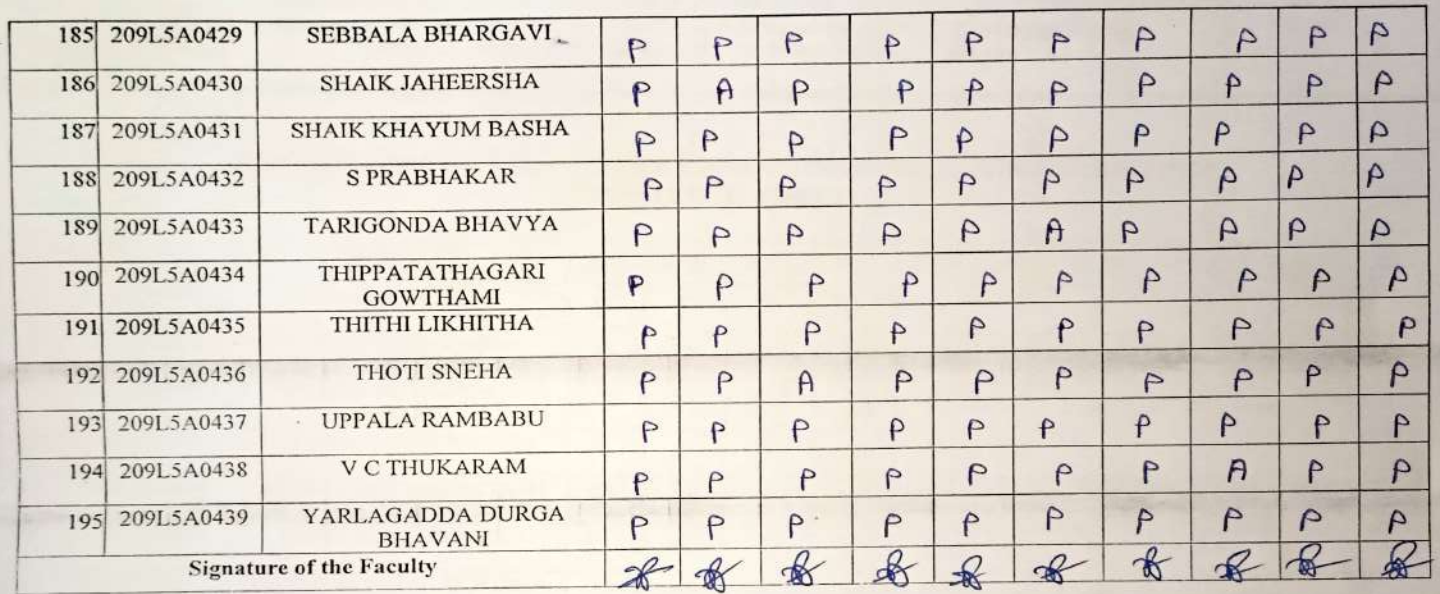 185 209L5A0429 SEBBALA BHARGAVI P P P P P P P P P P
186 209L5A0430 SHAIK JAHEERSHA P A P P P P P P P P
187 209L5A0431 SHAIK KHAYUM BASHA P P P P P P P P P P
188 209L5A0432 S PRABHAKAR P P P P P P P P P P
189 209L5A0433 TARIGONDA BHAVYA P P P P P A P P P P
190 209L5A0434 THIPPATATHAGARI
GOWTHAMI P P P P P P P P P P
191 209L5A0435 THITHI LIKHITHA P P P P P P P P P P
192 209L5A0436 THOTI SNEHA P P A P P P P P P P
193 209L5A0437 UPPALA RAMBABU P P P P P P P P P P
194 209L5A0438 V C THUKARAM P P P P P P P A P P
195 209L5A0439 YARLAGADDA DURGA
BHAVANI P P P P P P P P P P
Signature of the Faculty